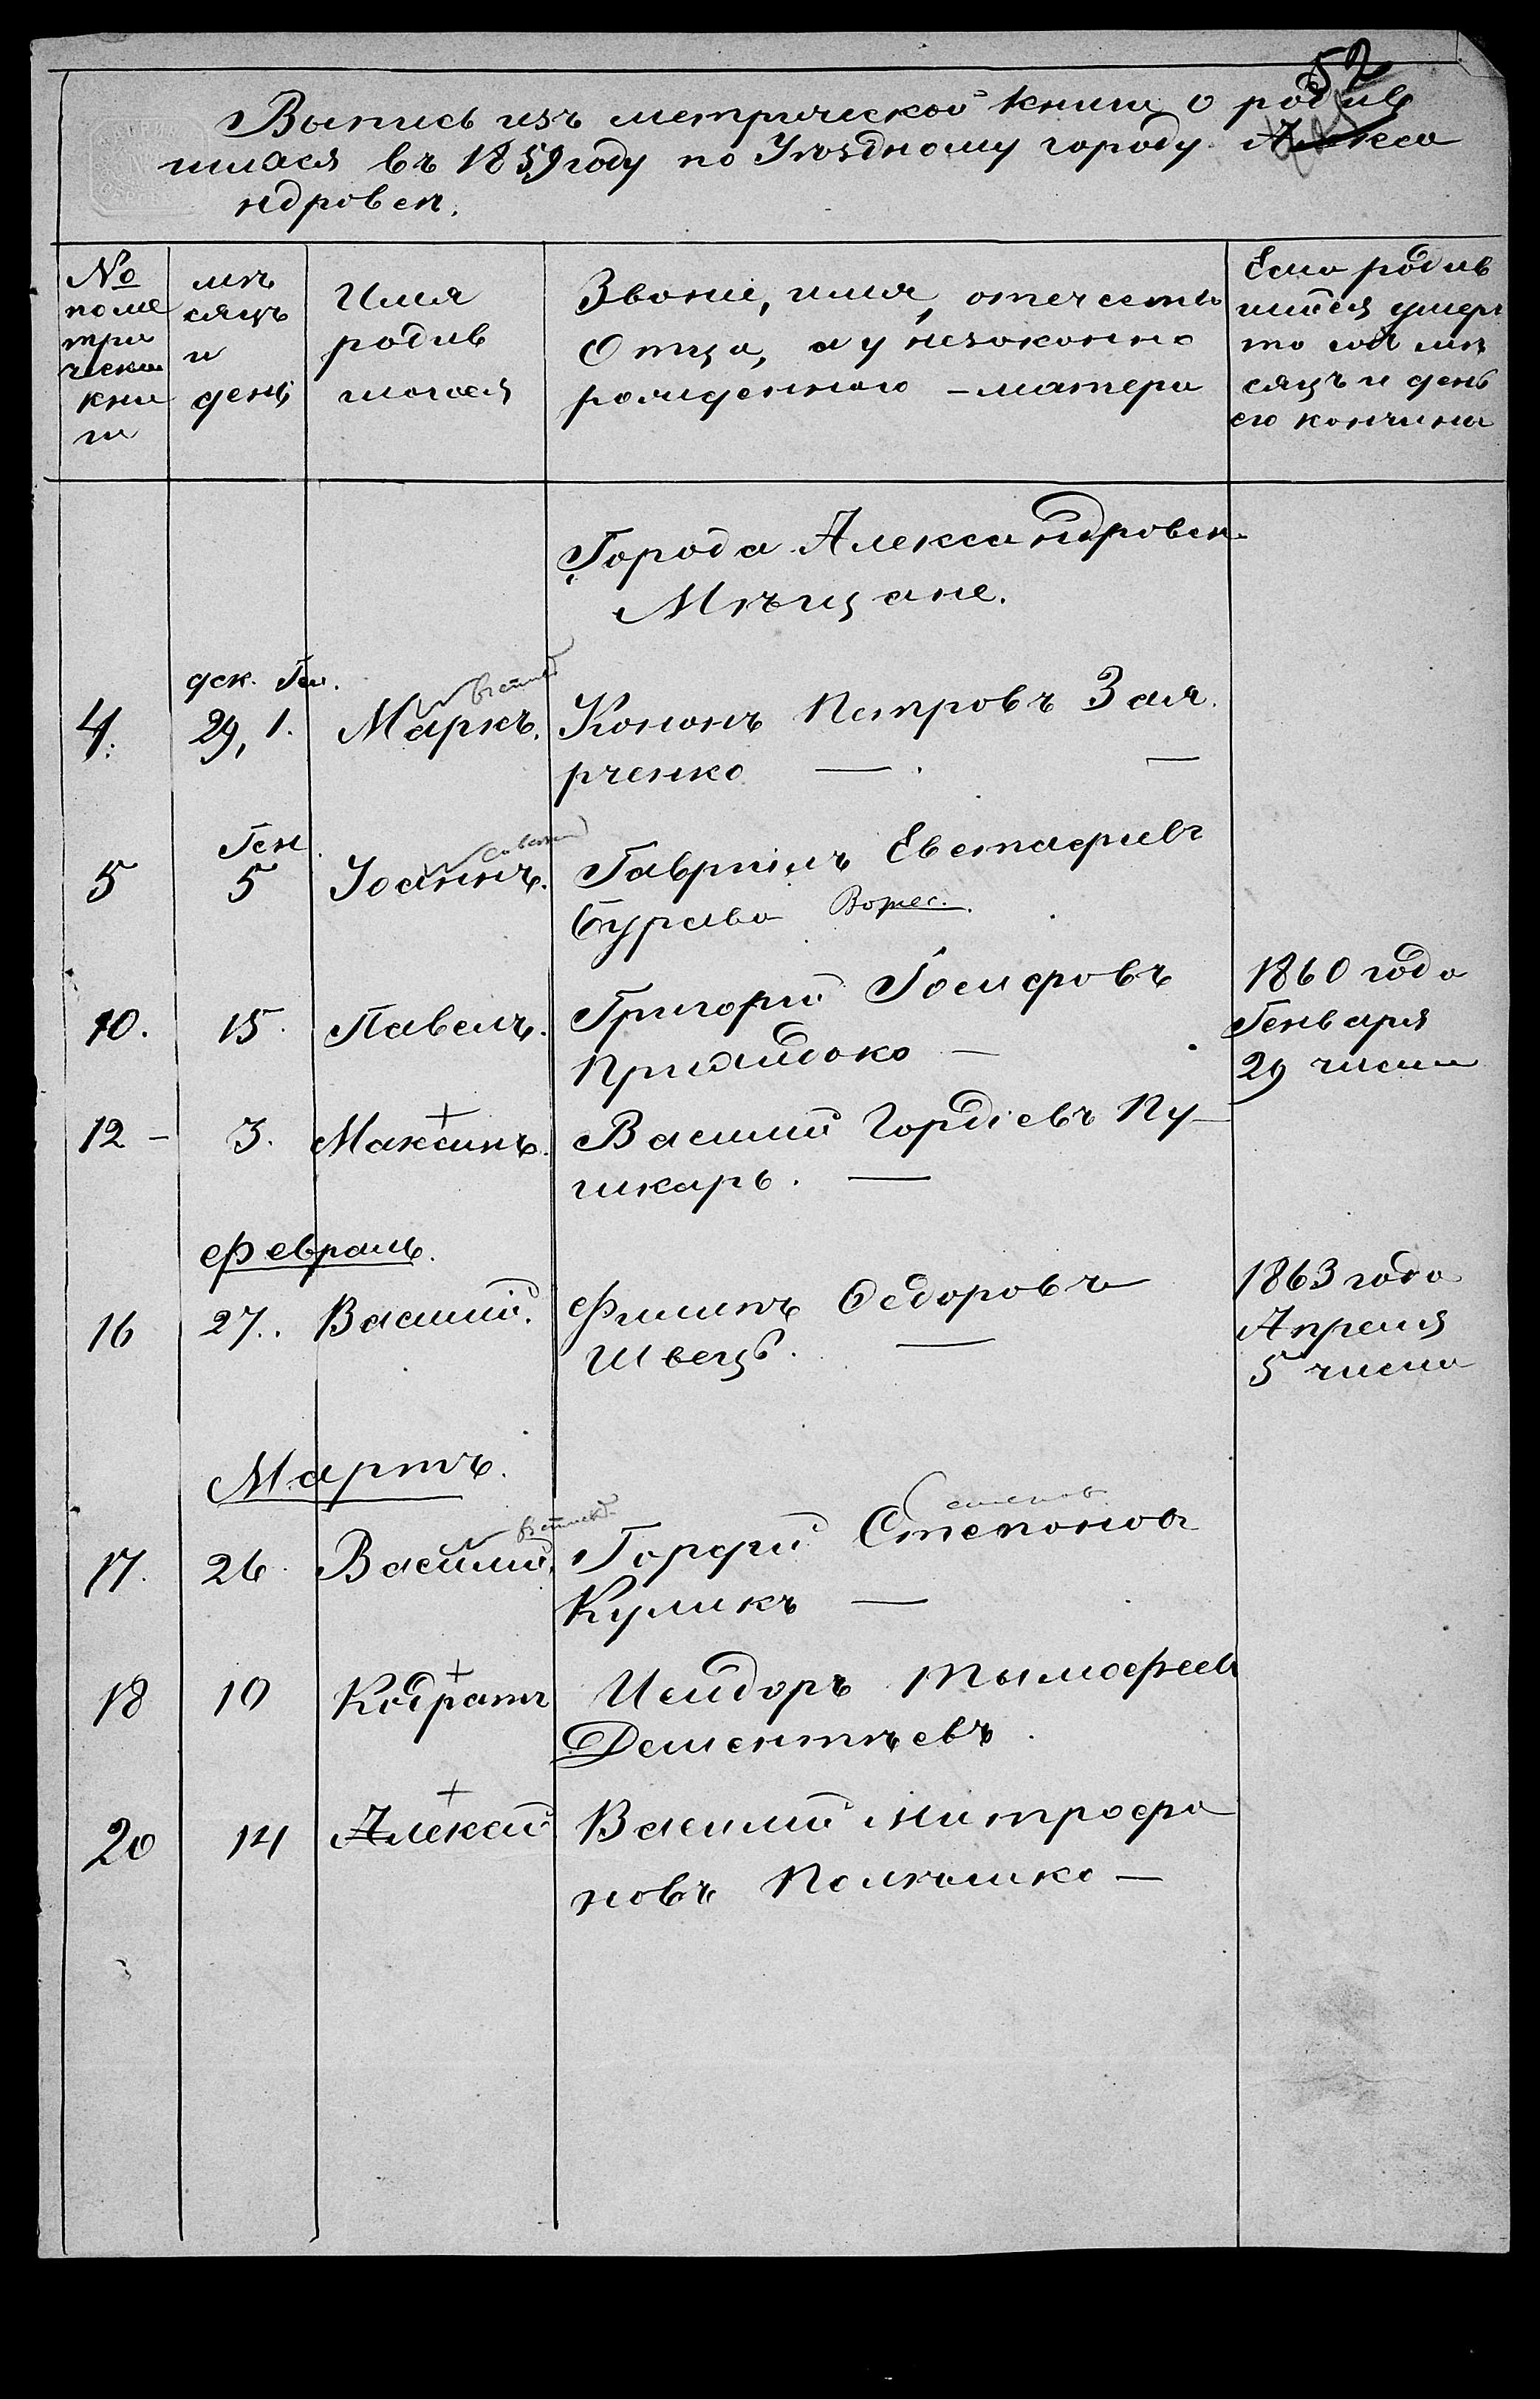 52
Выпись изъ метрической книги о родив
шихся въ 1859 году по Уѣздному городу Алекса
ндровск.
№ по ме три ческой кни ги
мѣ сяцъ и день
Имя родив шагося
Званіе, имя, отечество Отца, а у незаконно рожденнаго - матери
Если родив шійся умеръ то год мѣ сяцъ и день его кончины
Города Александровск.
Мѣщане.
дек. Ген.
4. 29, 1. Маркъ. Кононъ Петровъ Зая.
рченко — . —
Ген.
5 5 Іоаннъ. Гавріилъ Евстафіевъ
Бурава
10. 15. Павелъ. Григорій Іосифовъ 1860 года
Генваря
29 числа
12 - 3. Максимъ. Василій Гордіевъ Пу-
шкарь. —
Февраль.
16 27. Василій. Филипъ Федоровъ 1863 года
Швецъ. — Апреля
5 числа
Мартъ.
17. 26. Василій. Степанов
Куликъ —
18 10 Кодратъ Исидоръ Тымофеев
Дементьевъ.
20 14 Алексей Василій Митрофа
новъ —